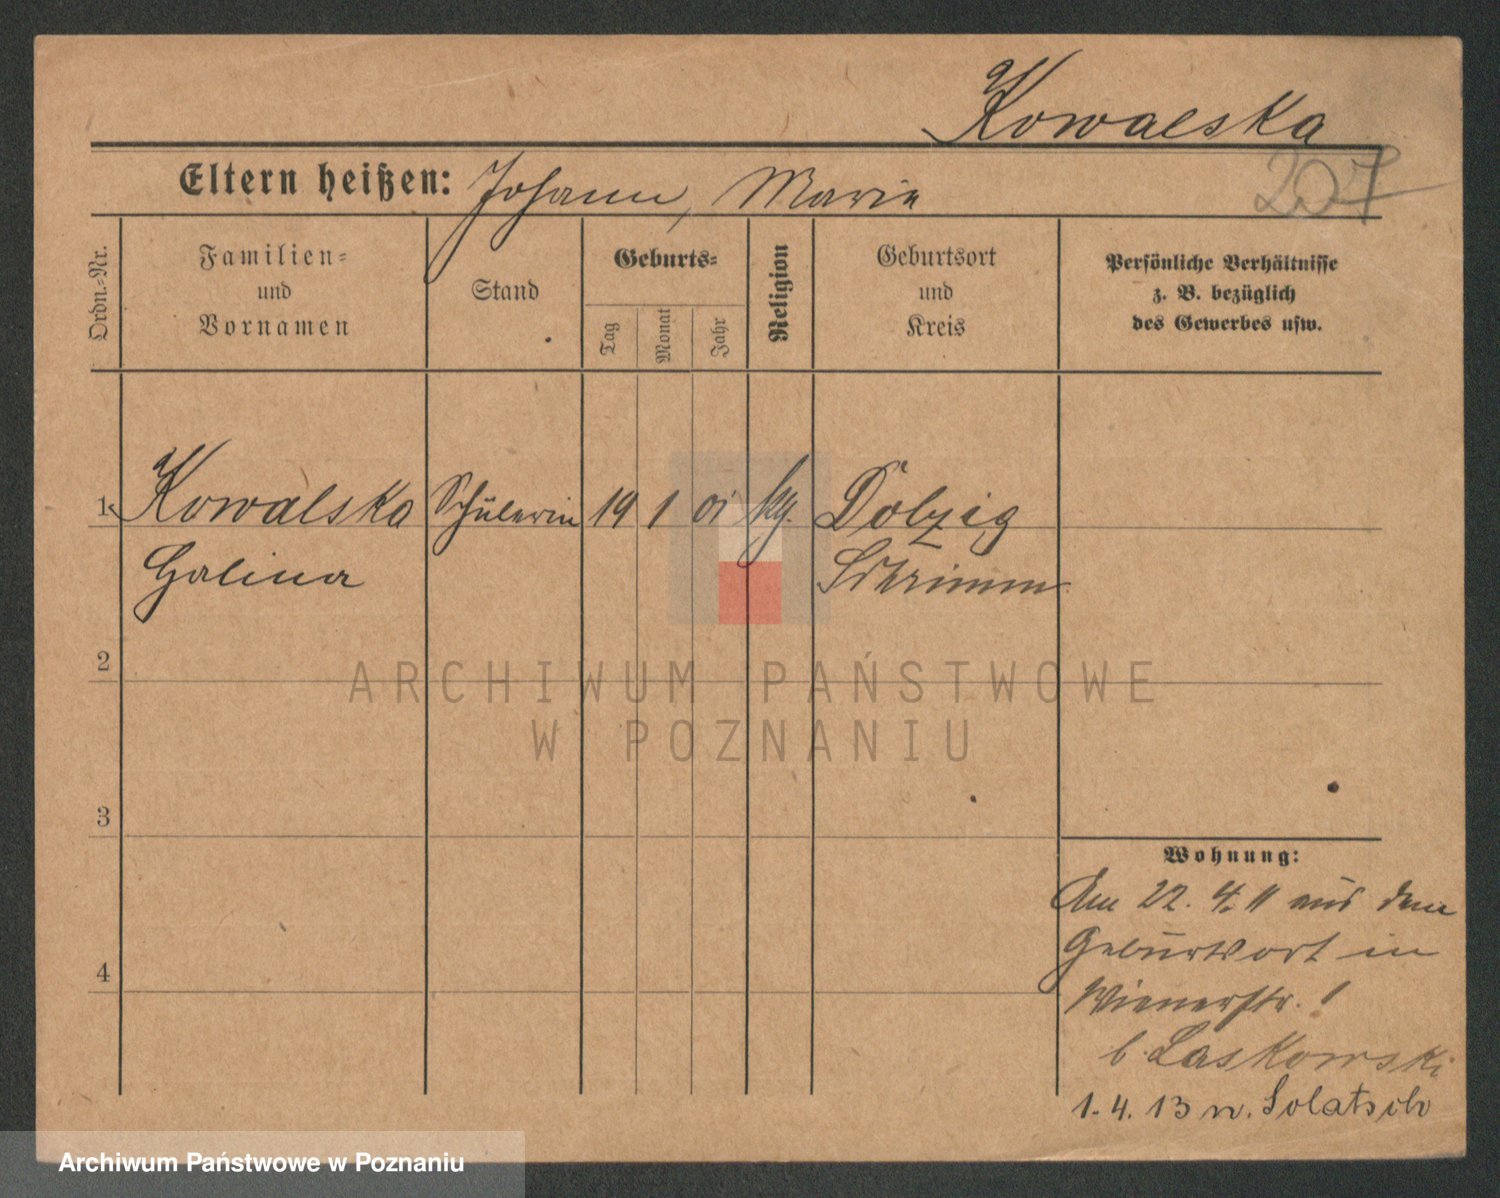 Kowalska
207
Eltern heißen: Johann, Marie
Ordn.-Nr.
Familien-
und
Vornamen
Stand
Geburts-
Tag
Monat
Jahr
Religion
Geburtsort
und
Kreis
Persönliche Verhältnisse
z. B. bezüglich
des Gewerbes usw.
1 Kowalska Schülerin 19 1 01 kg. Dolzig
Halina Schrimm
2
3
4
ARCHIWUM PAŃSTWOWE
W POZNANIU
Wohnung:
Am 22. 4. 11 aus dem
Geburtsort in
Wienerstr. 1
b. Laskowski
1. 4. 13 n. Solatsch
Archiwum Państwowe w Poznaniu